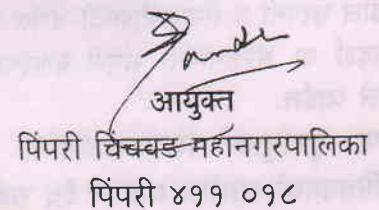 आयुक्त
पिंपरी चिंचवड महानगरपालिका
पिंपरी ४११ ०१८